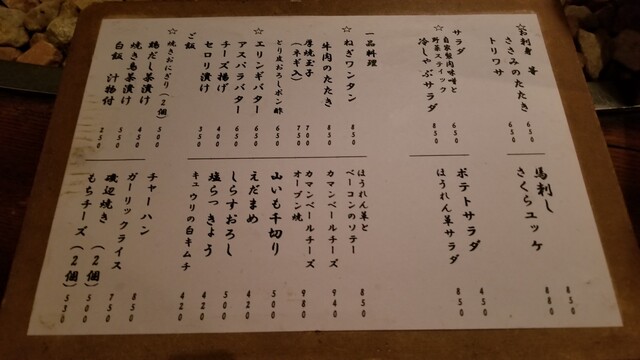 ☆お刺身 等
ささみのたたき 650
トリワサ 650
サラダ
自家製肉味噌と
野菜スティック 650
☆冷しゃぶサラダ 850
一品料理
☆ねぎワンタン 850
牛肉のたたき 830
厚焼玉子 700
(ネギ入) 750
とり皮おろしポン酢 450
☆エリンギバター 650
アスパラバター 650
チーズ揚げ 400
セロリ漬け 350
ご飯
☆焼きおにぎり(2個) 500
鶏だし茶漬け
焼き鳥茶漬け 450
白飯 350
汁物付 250
馬刺し 850
さくらユッケ 880
ポテトサラダ 450
ほうれん草サラダ 850
ほうれん草と
ベーコンのソテー 850
カマンベールチーズ 940
カマンベールチーズ
オーブン焼 980
山いも千切り 500
えだまめ 420
しらすおろし 500
塩らっきょう 420
キュウリの白キムチ 420
チャーハン 850
ガーリックライス 750
磯辺焼き (2個) 500
もちチーズ (2個) 530